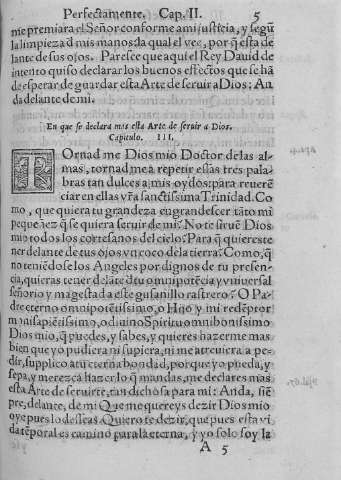 Perfectamente. Cap. II. 5
me premiara el Señor conforme a mi justicia, y segũ
la limpieza d mis manos: la qual el vee, por q̃ esta de
lante de sus ojos. Paresce que aqui el Rey Dauid de
intento quiso declarar los buenos effectos que se hã
de esperar de guardar esta Arte de seruir a Dios: An
da delante de mi.
En que se declara mas esta Arte de seruir a Dios.
Capitulo. III.
TOrnad me Dios mio Doctor de las al-
mas, tornad me a repetir estas tres pala
bras tan dulces a mis oydos: para reuerẽ
ciar en ellas vr̃a sanctissima Trinidad. Co
mo, que quiera tu grandeza engrandescer tãto mi
pequeñez q̃ se quiera seruir de mi? No te siruẽ Dios
mio todos los cortesanos del cielo? Para q̃ quieres te
ner delante de tus ojos vn coco de la tierra? Como, q̃
no teniẽdo se los Angeles por dignos de tu presen-
cia, quieras tener delãte d tu omnipotẽcia y vniuersal
señorio y magestad a este gusanillo rastrero? O Pa
dre eterno omnipotẽtissimo, o Hijo y mi redẽptor
omnisapiẽtissimo, o diuino Spiritu omnibonissimo
Dios mio, q̃ puedes, y sabes, y quieres hazerme mas
bien que yo pudiera ni supiera, ni me atreuiera a pe-
dir, supplico a tu eterna bondad, por que yo pueda, y
sepa, y merezca hazer lo q̃ mandas, me declares mas
esta Arte de seruirte, tan dichosa para mi: Anda, siẽ
pre, delante, de mi Que me quereys dezir Dios mio
oye pues lo desseas. Quiero te dezir, que pues esta vi
da tẽporal es camino para la eterna, y yo solo soy la
A 5